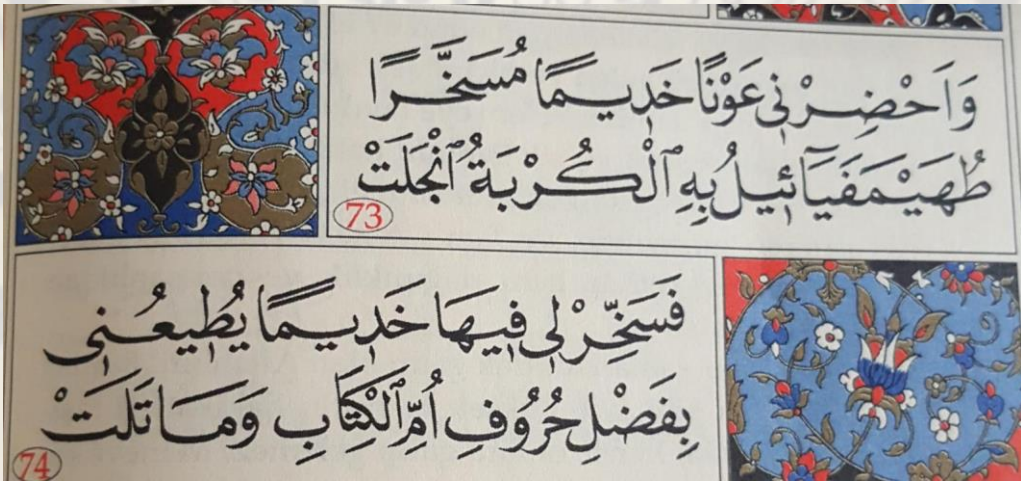 وَاَحْضِرْنِي عَوْنًا خَدِيمًا مُسَخَّرًا
طُهَيْمَفَيَآئِيلُ بِهِ ٱلْكُرْبَةُ ٱنْجَلَتْ
73
فَسَخِّرْ لِي فِيهَا خَدِيمًا يُطِيعُنِي
بِفَضْلِ حُرُوفِ اُمِّ ٱلْكِتَابِ وَمَا تَلَتْ
74